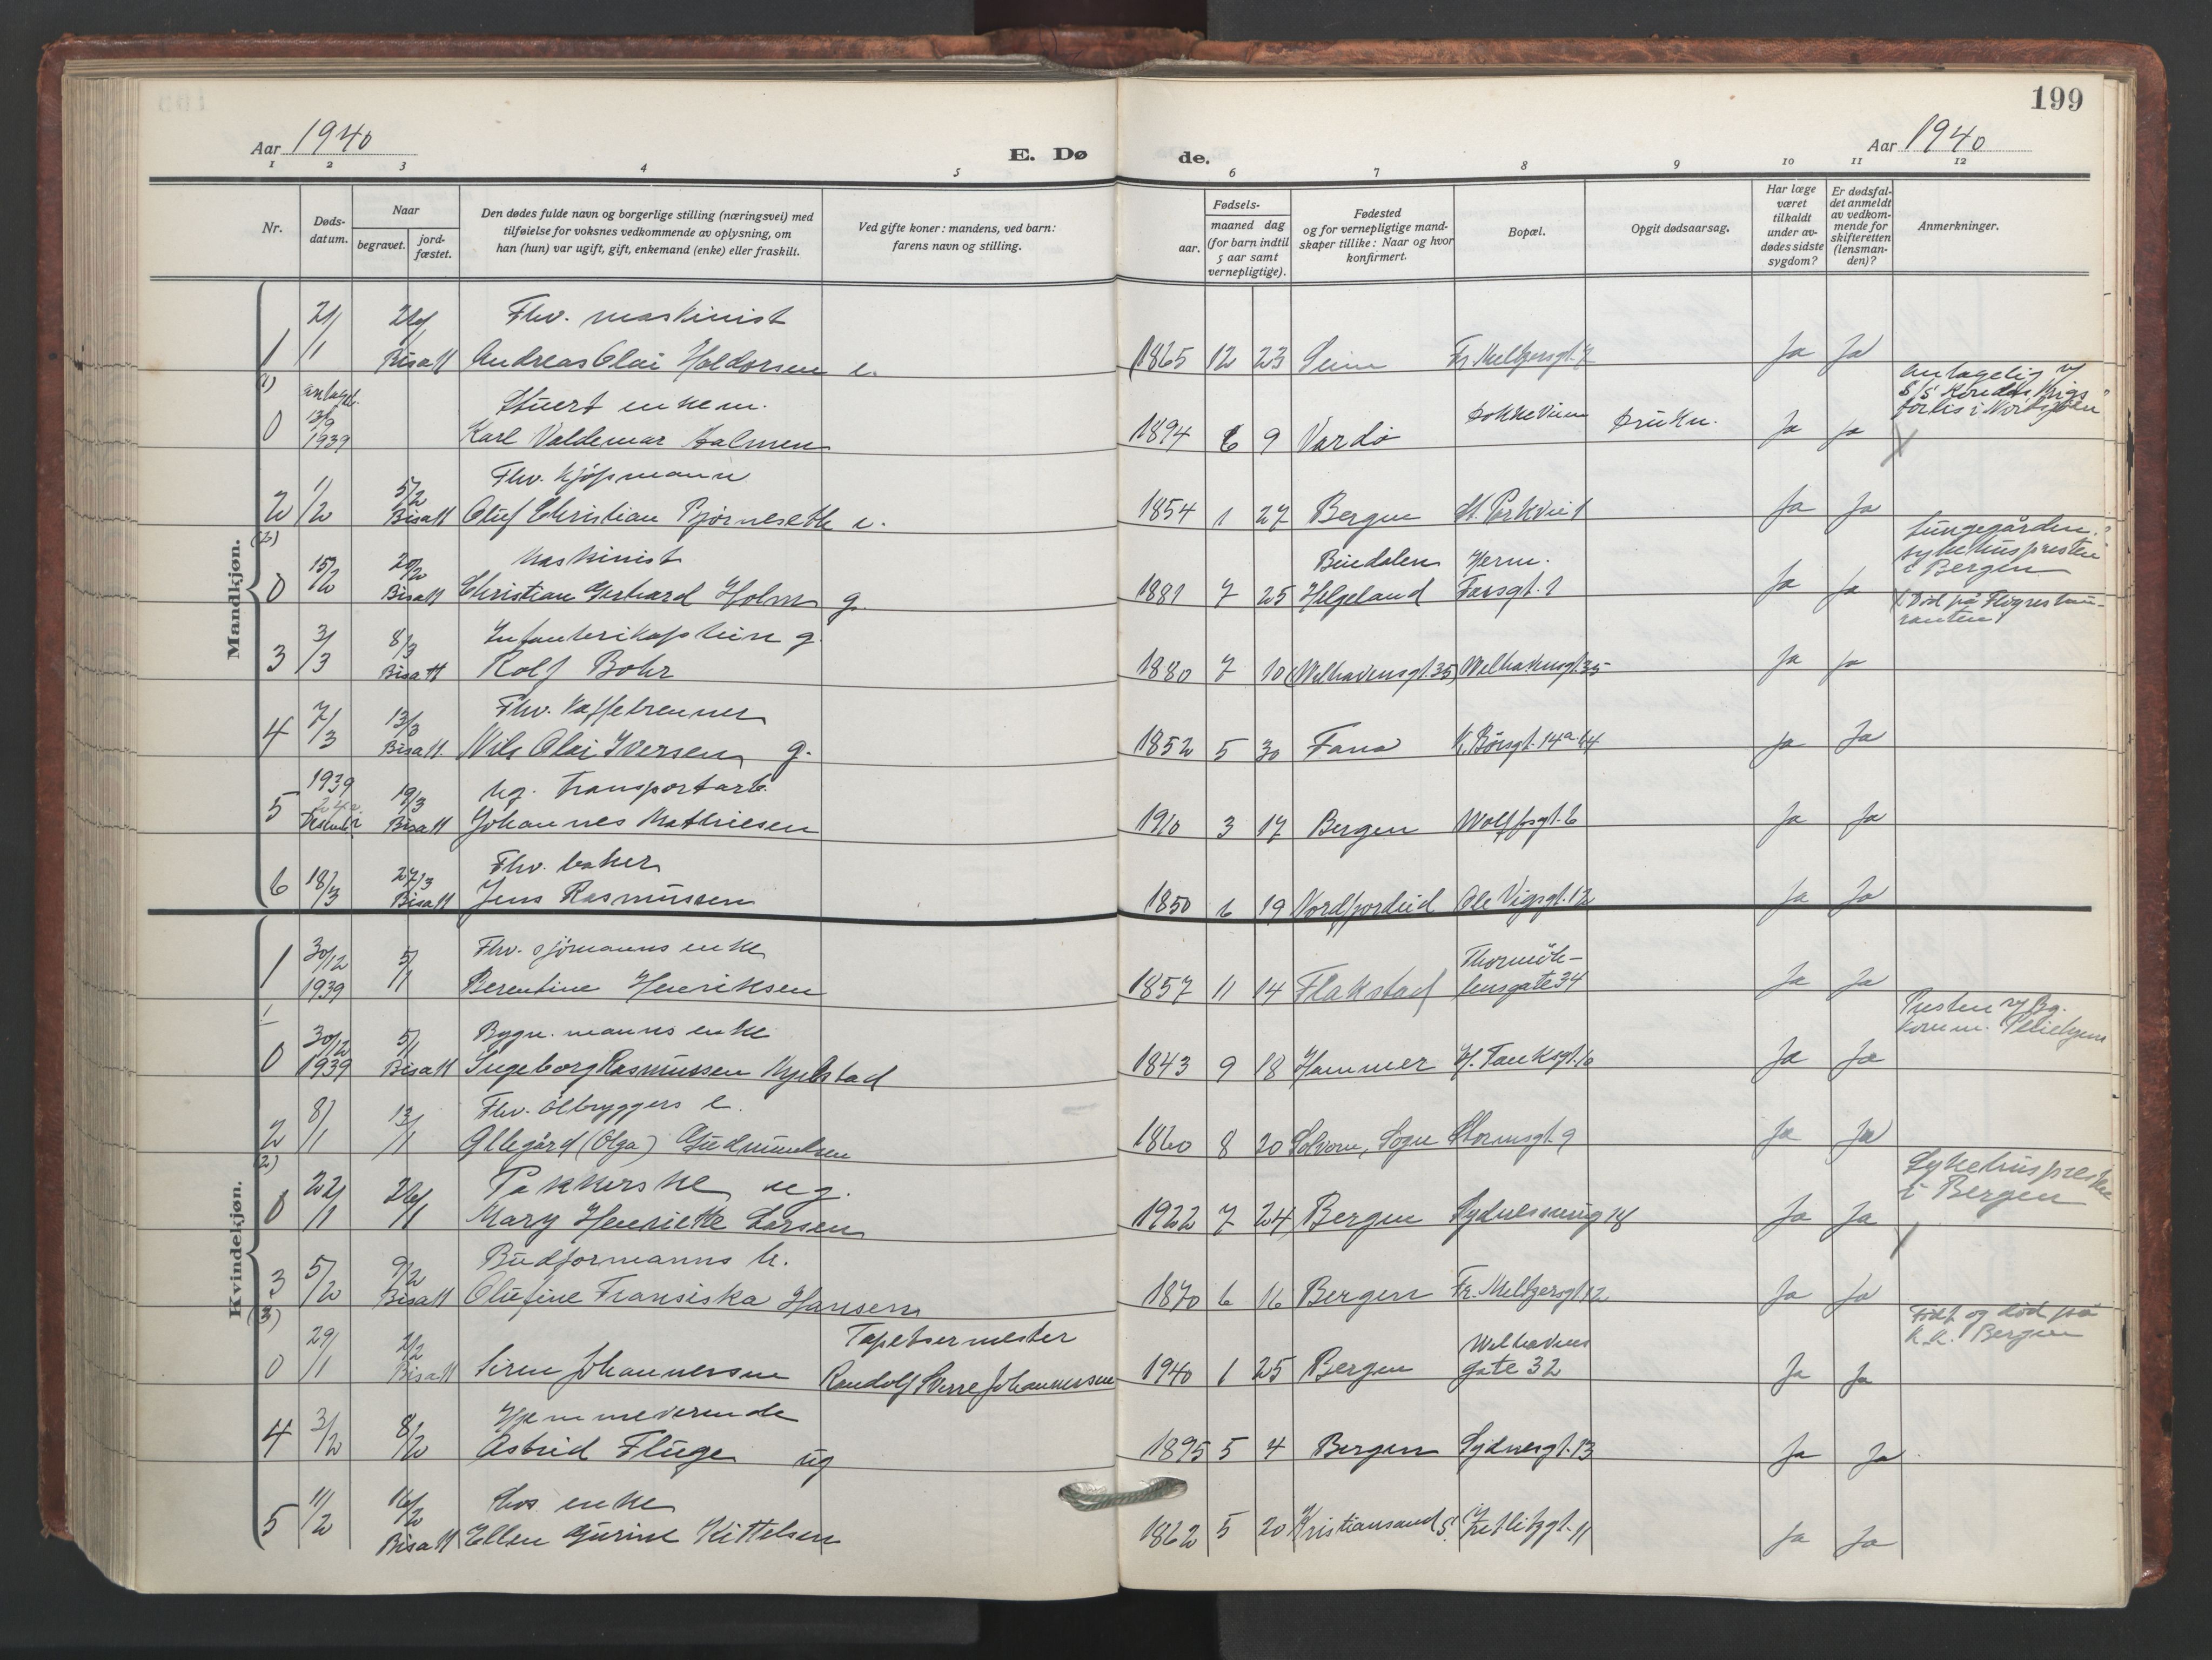 199
Aar 1940
E. Dø
de.
Aar 1940
1 2 3 4 5 6 7 8 9 10 11 12
Nr.
Døds-
datum.
Naar
begravet.
jord-
fæstet.
Den dødes fulde navn og borgerlige stilling (næringsvei) med
tilføielse for voksnes vedkommende av oplysning, om
han (hun) var ugift, gift, enkemand (enke) eller fraskilt.
Ved gifte koner: mandens, ved barn:
farens navn og stilling.
Fødsels-
aar.
maaned dag
(for barn indtil
5 aar samt
vernepligtige).
Fødested
og for vernepligtige mand-
skaper tillike: Naar og hvor
konfirmert.
Bopæl.
Opgit dødsaarsag.
Har læge
været
tilkaldt
under av-
dødes sidste
sygdom?
Er dødsfal-
det anmeldt
av vedkom-
mende for
skifteretten
(lensman-
den)?
Anmerkninger.
Mandkjøn.
21/1 26/1 Fhv. maskinist
1 Bisatt Andreas Olai Haldorsen e. 1865 12 23 Seim Fr. Meltzersgt. 7 Ja Ja
(1) antagel. Stuert enkem.
0 13/9 1939 Karl Valdemar Halmen 1894 6 9 Vardø Dokkeveien Drukn. Ja Ja
Antagelig v/
S/S
forlis i Nordsjøen
Fhv. Kjøpmann
2 1/2 5/2 Bisatt Oluf Christian Bjørneseth e. 1854 1 27 Bergen St. Parkvei 1 Ja Ja
(2) Maskinist Bindalen Herm.
0 15/2 20/2 Bisatt Christian Gerhard Holm g. 1881 7 25 Helgeland Fossgt. 1 Ja Ja
Lungegården
sykehuspresten
i Bergen
Infanterikaptein g.
3 3/3 8/3 Bisatt Rolf Bohr 1880 7 10 (Welhavensgt. 35) Welhavensgt. 35 Ja Ja
(Død på
Fhv. Kaffebrenner
4 7/3 13/3 Bisatt Nils Olai Iversen g. 1852 5 30 Fana 14a Ja Ja
1939 ug. Transportarb.
5 Desember 19/3 Bisatt Johannes Mathiesen 1910 3 17 Bergen Wolffsgt. 6 Ja Ja
Fhv. baker
6 18/3 27/3 Bisatt Jens Rasmussen 1850 6 19 Nordfjordeid Ole Vigsgt. 12 Ja Ja
Kvindekjøn.
Fhv. sjømanns enke Thormøh-
1 30/12 1939 5/1 Berentine Henriksen 1857 11 14 Flakstad lensgate 34 Ja Ja
Bygn. manns enke
0 30/12 1939 5/1 Bisatt Ingeborg Rasmussen 1843 9 18 Hammer Ja Ja
Presten v/ Bg.
komm. Pleiehjem
Fhv. Ølbryggers e.
2 8/1 13/1 Allegård (Olga) Gudmundsen 1860 8 20 Solvorn, Sogn Stormsgt. 9 Ja Ja
(2) Pakkerske ug.
0 22/1 26/1 Mary Henriette Larsen 1922 7 24 Bergen Sydnessmug 18 Ja Ja
Sykehuspresten
i Bergen
Budformanns h.
3 5/2 9/2 Bisatt Olufine Fransiska Hansen 1870 6 16 Bergen Fr. Meltzersgt 12 Ja Ja
(3) Tapetsermester Welhavens
0 29/1 2/2 Bisatt Siren Johannessen Randolf Sverre Johannessen 1940 1 25 Bergen gate 32 Ja Ja
Født og død på
K.K. Bergen
Hjemmeværende
4 3/2 8/2 Astrid Fluge ug 1895 5 4 Bergen Sydnesgt. 13 Ja Ja
Los enke
5 11/2 16/2 Bisatt Ellen Gurine Kittelsen 1862 5 20 Kristiansand S. Zetlitzgt. 11 Ja Ja